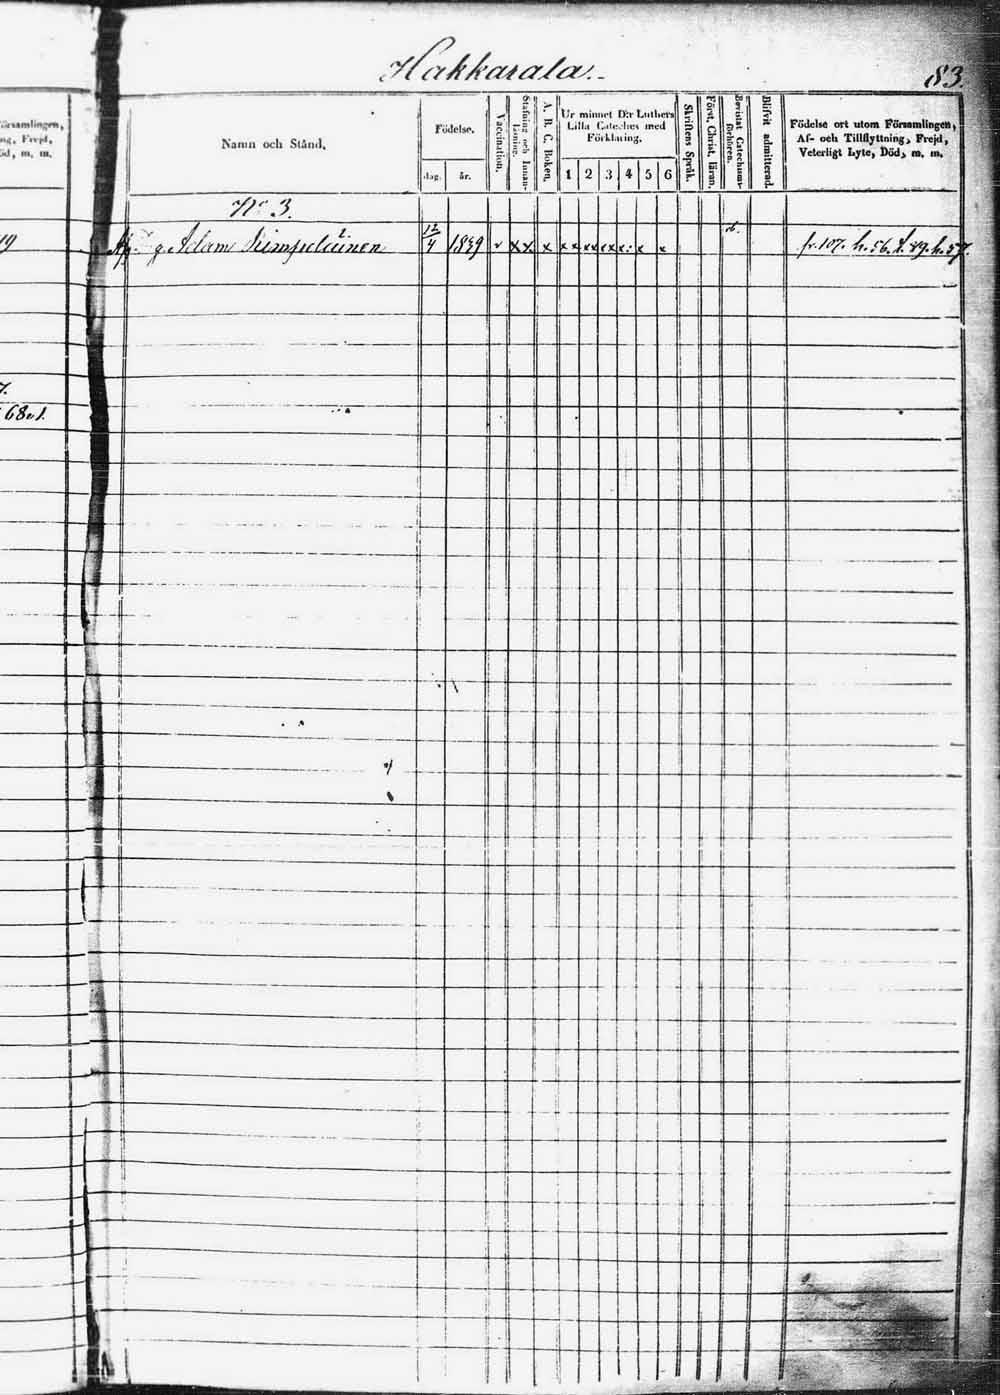 Hakkarala.
83.
örsamlingen,
ng, Frejd,
öd, m. m.
Namn och Stånd,
Födelse.
dag.
år.
Vaccination.
Stafning och Innan-
läsning.
A. B. C. Boken.
Ur minnet D:r Luthers
Lilla Cateches med
Förklaring.
1 2 3 4 5 6
Skriftens Språk.
Först. Christ. läran.
Bevistat Catechumi-
förhören.
Blifvit admitterad.
Födelse ort utom Församlingen,
Af- och Tillflyttning, Frejd,
Veterligt Lyte, Död, m. m.
No 3.
19
Adam 12/4 1839 v x x x x x x x x x x x fr. 107. h. 56. 89. h. 57.
7.
68.1.